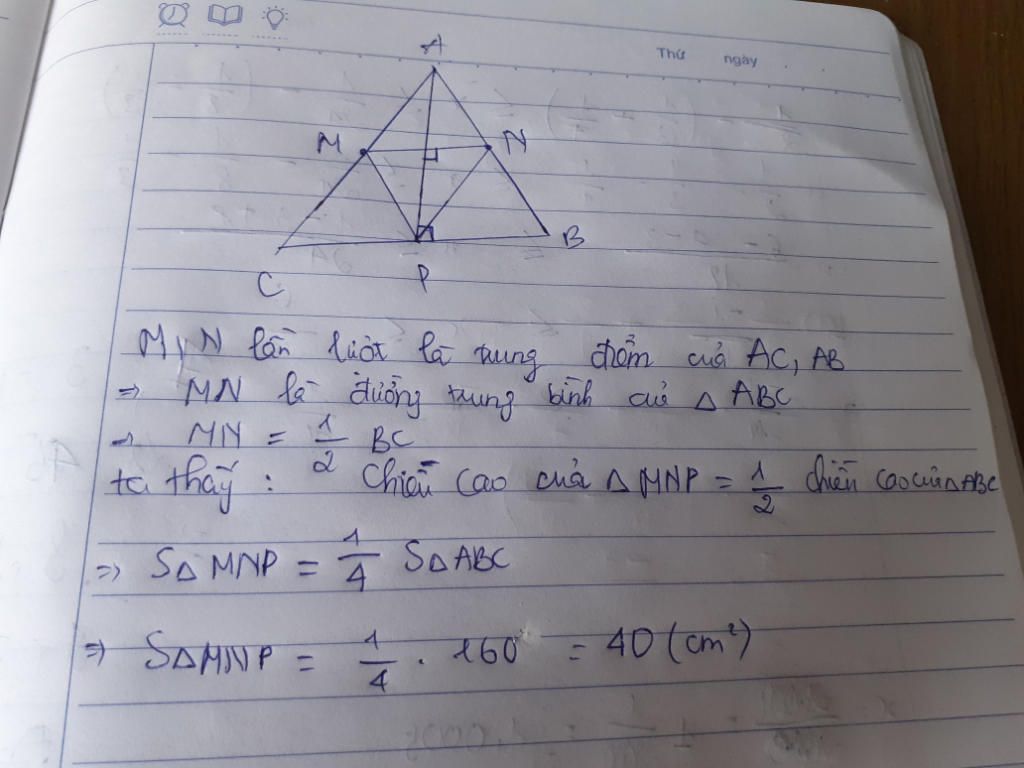 Thứ ngày
A
M N
C P B
M, N lần lượt là trung điểm của AC, AB
=> MN là đường trung bình của Δ ABC
→ MN = 1/2 BC
ta thấy : Chiều cao của Δ MNP = 1/2 chiều cao của Δ ABC
=> SΔ MNP = 1/4 SΔ ABC
=> SΔ MNP = 1/4 . 160 = 40 (cm²)